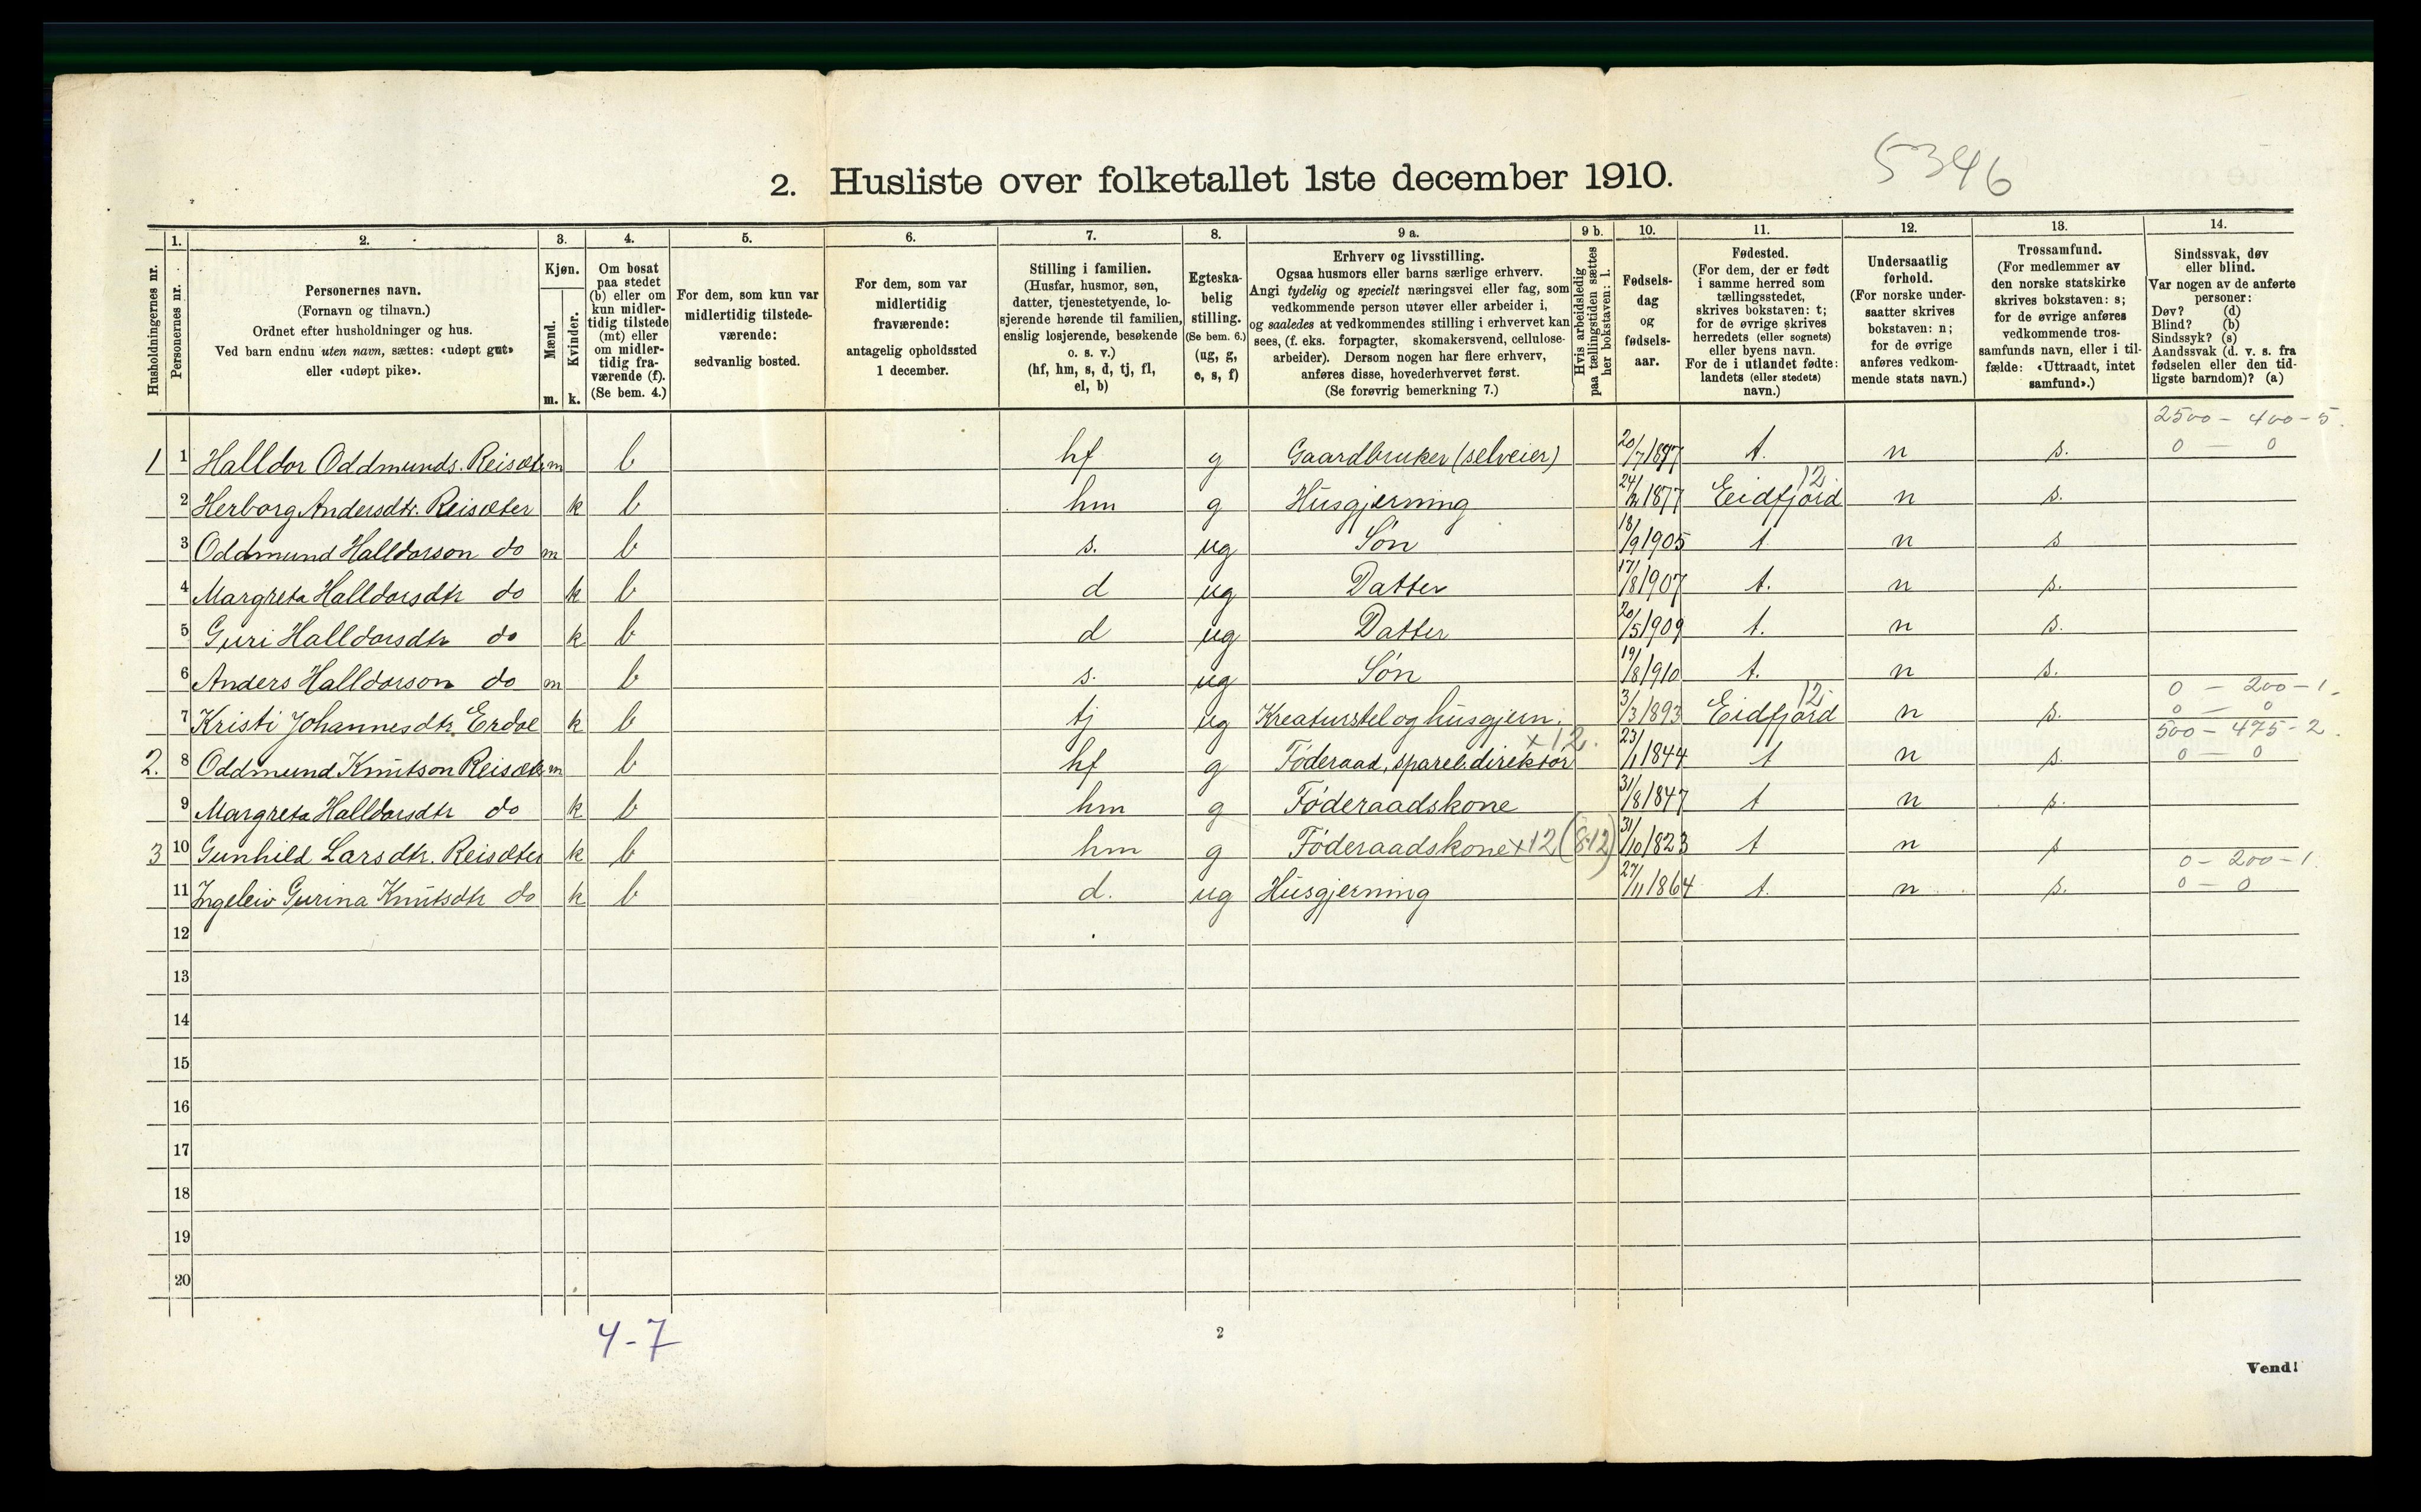 5346
2. Husliste over folketallet 1ste december 1910.
Husholdningernes nr.
1.
Personernes nr.
2.
Personernes navn.
(Fornavn og tilnavn.)
Ordnet efter husholdninger og hus.
Ved barn endnu uten navn, sættes: «udøpt gut»
eller «udøpt pike».
3.
Kjøn.
Mænd.
Kvinder.
m. k.
4.
Om bosat
paa stedet
(b) eller om
kun midler-
tidig tilstede
(mt) eller
om midler-
tidig fra-
værende (f).
(Se bem. 4.)
5.
For dem, som kun var
midlertidig tilstede-
værende:
sedvanlig bosted.
6.
For dem, som var
midlertidig
fraværende:
antagelig opholdssted
1 december.
7.
Stilling i familien.
(Husfar, husmor, søn,
datter, tjenestetyende, lo-
sjerende hørende til familien,
enslig losjerende, besøkende
o. s. v.)
(hf, hm, s, d, tj, fl,
el, b)
8.
Egteska-
belig
stilling.
(Se bem. 6.)
(ug, g,
e, s, f)
9 a.
Erhverv og livsstilling.
Ogsaa husmors eller barns særlige erhverv.
Angi tydelig og specielt næringsvei eller fag, som
vedkommende person utøver eller arbeider i,
og saaledes at vedkommendes stilling i erhvervet kan
sees, (f. eks. forpagter, skomakersvend, cellulose-
arbeider). Dersom nogen har flere erhverv,
anføres disse, hovederhvervet først.
(Se forøvrig bemerkning 7.)
9 b.
Hvis arbeidsledig
paa tællingstiden sættes
her bokstaven: l.
10.
Fødsels-
dag
og
fødsels-
aar.
11.
Fødested.
(For dem, der er født
i samme herred som
tællingsstedet,
skrives bokstaven: t;
for de øvrige skrives
herredets (eller sognets)
eller byens navn.
For de i utlandet fødte:
landets (eller stedets)
navn.)
12.
Undersaatlig
forhold.
(For norske under-
saatter skrives
bokstaven: n;
for de øvrige
anføres vedkom-
mende stats navn.)
13.
Trossamfund.
(For medlemmer av
den norske statskirke
skrives bokstaven: s;
for de øvrige anføres
vedkommende tros-
samfunds navn, eller i til-
fælde: «Uttraadt, intet
samfund».)
14.
Sindssvak, døv
eller blind.
Var nogen av de anførte
personer:
Døv? (d)
Blind? (b)
Sindssyk? (s)
Aandssvak (d. v. s. fra
fødselen eller den tid-
ligste barndom)? (a)
2500 - 400 - 5.
1 1 Halldor Oddmunds. Reisæter m b hf g Gaardbruker (selveier) 20/7 t. n s. 0 - 0
2 Herborg Andersdtr. Reisæter k b hm g Husgjerning 24/12 1877 Eidfjord 12 n s.
3 Oddmund Halldorson do m b s. ug Søn 18/9 1905 t n s
4 Margreta Halldorsdtr do k b d ug Datter 17/8 1907 t. n s.
5 Guri Halldorsdtr do k b d ug Datter 20/5 1909 t. n s.
6 Anders Halldorson do m b s. ug Søn 19/8 1910 t. n s.
0 - 200 - 1.
7 Kristi Johannesdtr. Erdal k b tj ug Kreaturstel og husgjern. 3/3 1893 Eidfjord 12 n s. 0 - 0
500 - 475 - 2
2. 8 Oddmund Knutson Reisæter m b hf g Føderaad, spareb.direktør x12. 23/1 1844 t n s. 0 - 0
9 Margreta Halldorsdtr do k b hm g Føderaadskone 31/8 1847 t n s.
3 10 Gunhild Larsdtr. Reisæter k b hm g Føderaadskone x12 (8.12) 31/10 1823 t n s
0 - 200 - 1.
11 Ingeleiv Gurina Knutsdtr do k b d. ug Husgjerning 27/11 1864 t. n s. 0 - 0
12
13
14
15
16
17
18
19
20
4-7
2
Vend!